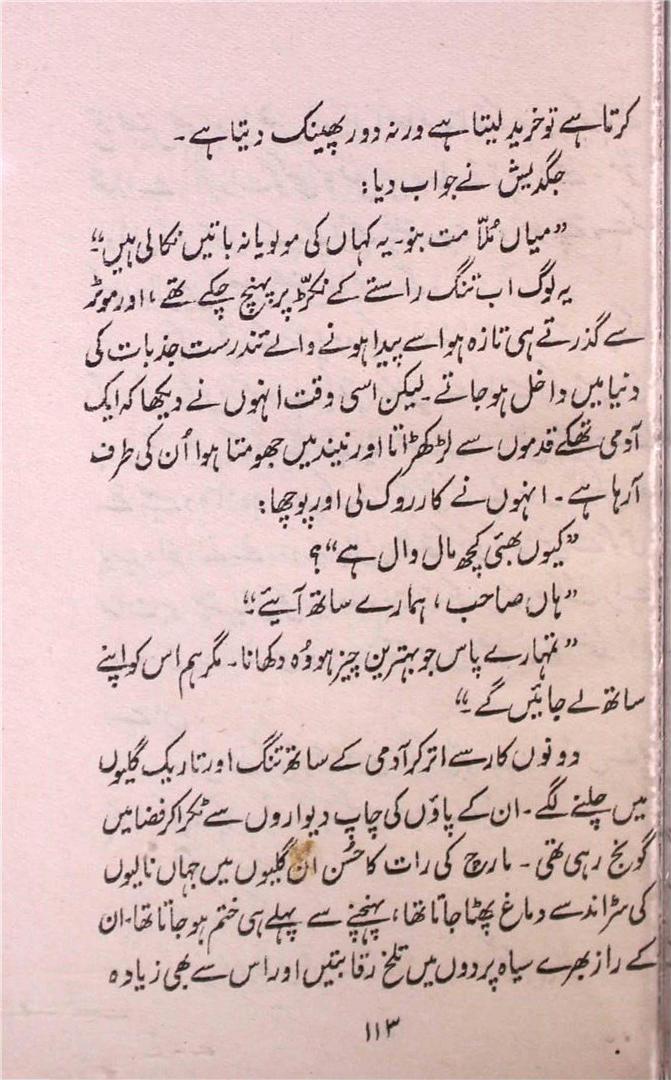 کرتا ہے تو خرید لیتا ہے ورنہ دور پھینک دیتا ہے۔
جگدیش نے جواب دیا:
”میاں مُلّا مت بنو۔ یہ کہاں کی مولویانہ باتیں نکالی ہیں“۔
یہ لوگ اب تنگ راستے کے نکڑ پر پہنچ چکے تھے، اور موٹر
سے گذرتے ہی تازہ ہوا سے پیدا ہونے والے تندرست جذبات کی
دنیا میں داخل ہو جاتے۔ لیکن اسی وقت انہوں نے دیکھا کہ ایک
آدمی تھکے قدموں سے لڑکھڑاتا اور نیند میں جھومتا ہوا اُن کی طرف
آ رہا ہے۔ انہوں نے کار روک لی اور پوچھا:
”کیوں بھئی کچھ مال وال ہے“؟
”ہاں صاحب، ہمارے ساتھ آیئے“۔
”تمہارے پاس جو بہترین چیز ہو وُہ دکھانا۔ مگر ہم اس کو اپنے
ساتھ لے جائیں گے۔“
دونوں کار سے اتر کر آدمی کے ساتھ تنگ اور تاریک گلیوں
میں چلنے لگے۔ ان کے پاؤں کی چاپ دیواروں سے ٹکرا کر فضا میں
گونج رہی تھی۔ مارچ کی رات کا حُسن ان گلیوں میں جہاں نالیوں
کی سڑاند سے دماغ پھٹا جاتا تھا، پہنچنے سے پہلے ہی ختم ہو جاتا تھا۔ ان
کے راز بھرے سیاہ پردوں میں تلخ رقابتیں اور اس سے بھی زیادہ
۱۱۳